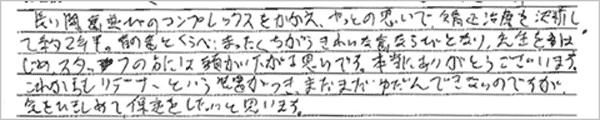 長い間歯並びのコンプレックスをかかえ、やっとの思いで矯正治療を決断し
て約2年半。前の歯とくらべ、まったくちがうきれいな歯ならびとなり、先生をは
じめスタッフの方には頭がさがる思いです。本当にありがとうございます。
これからもリテーナーという器具がつき、まだまだゆだんできないのですが、
気をひきしめて保定をしたいと思います。